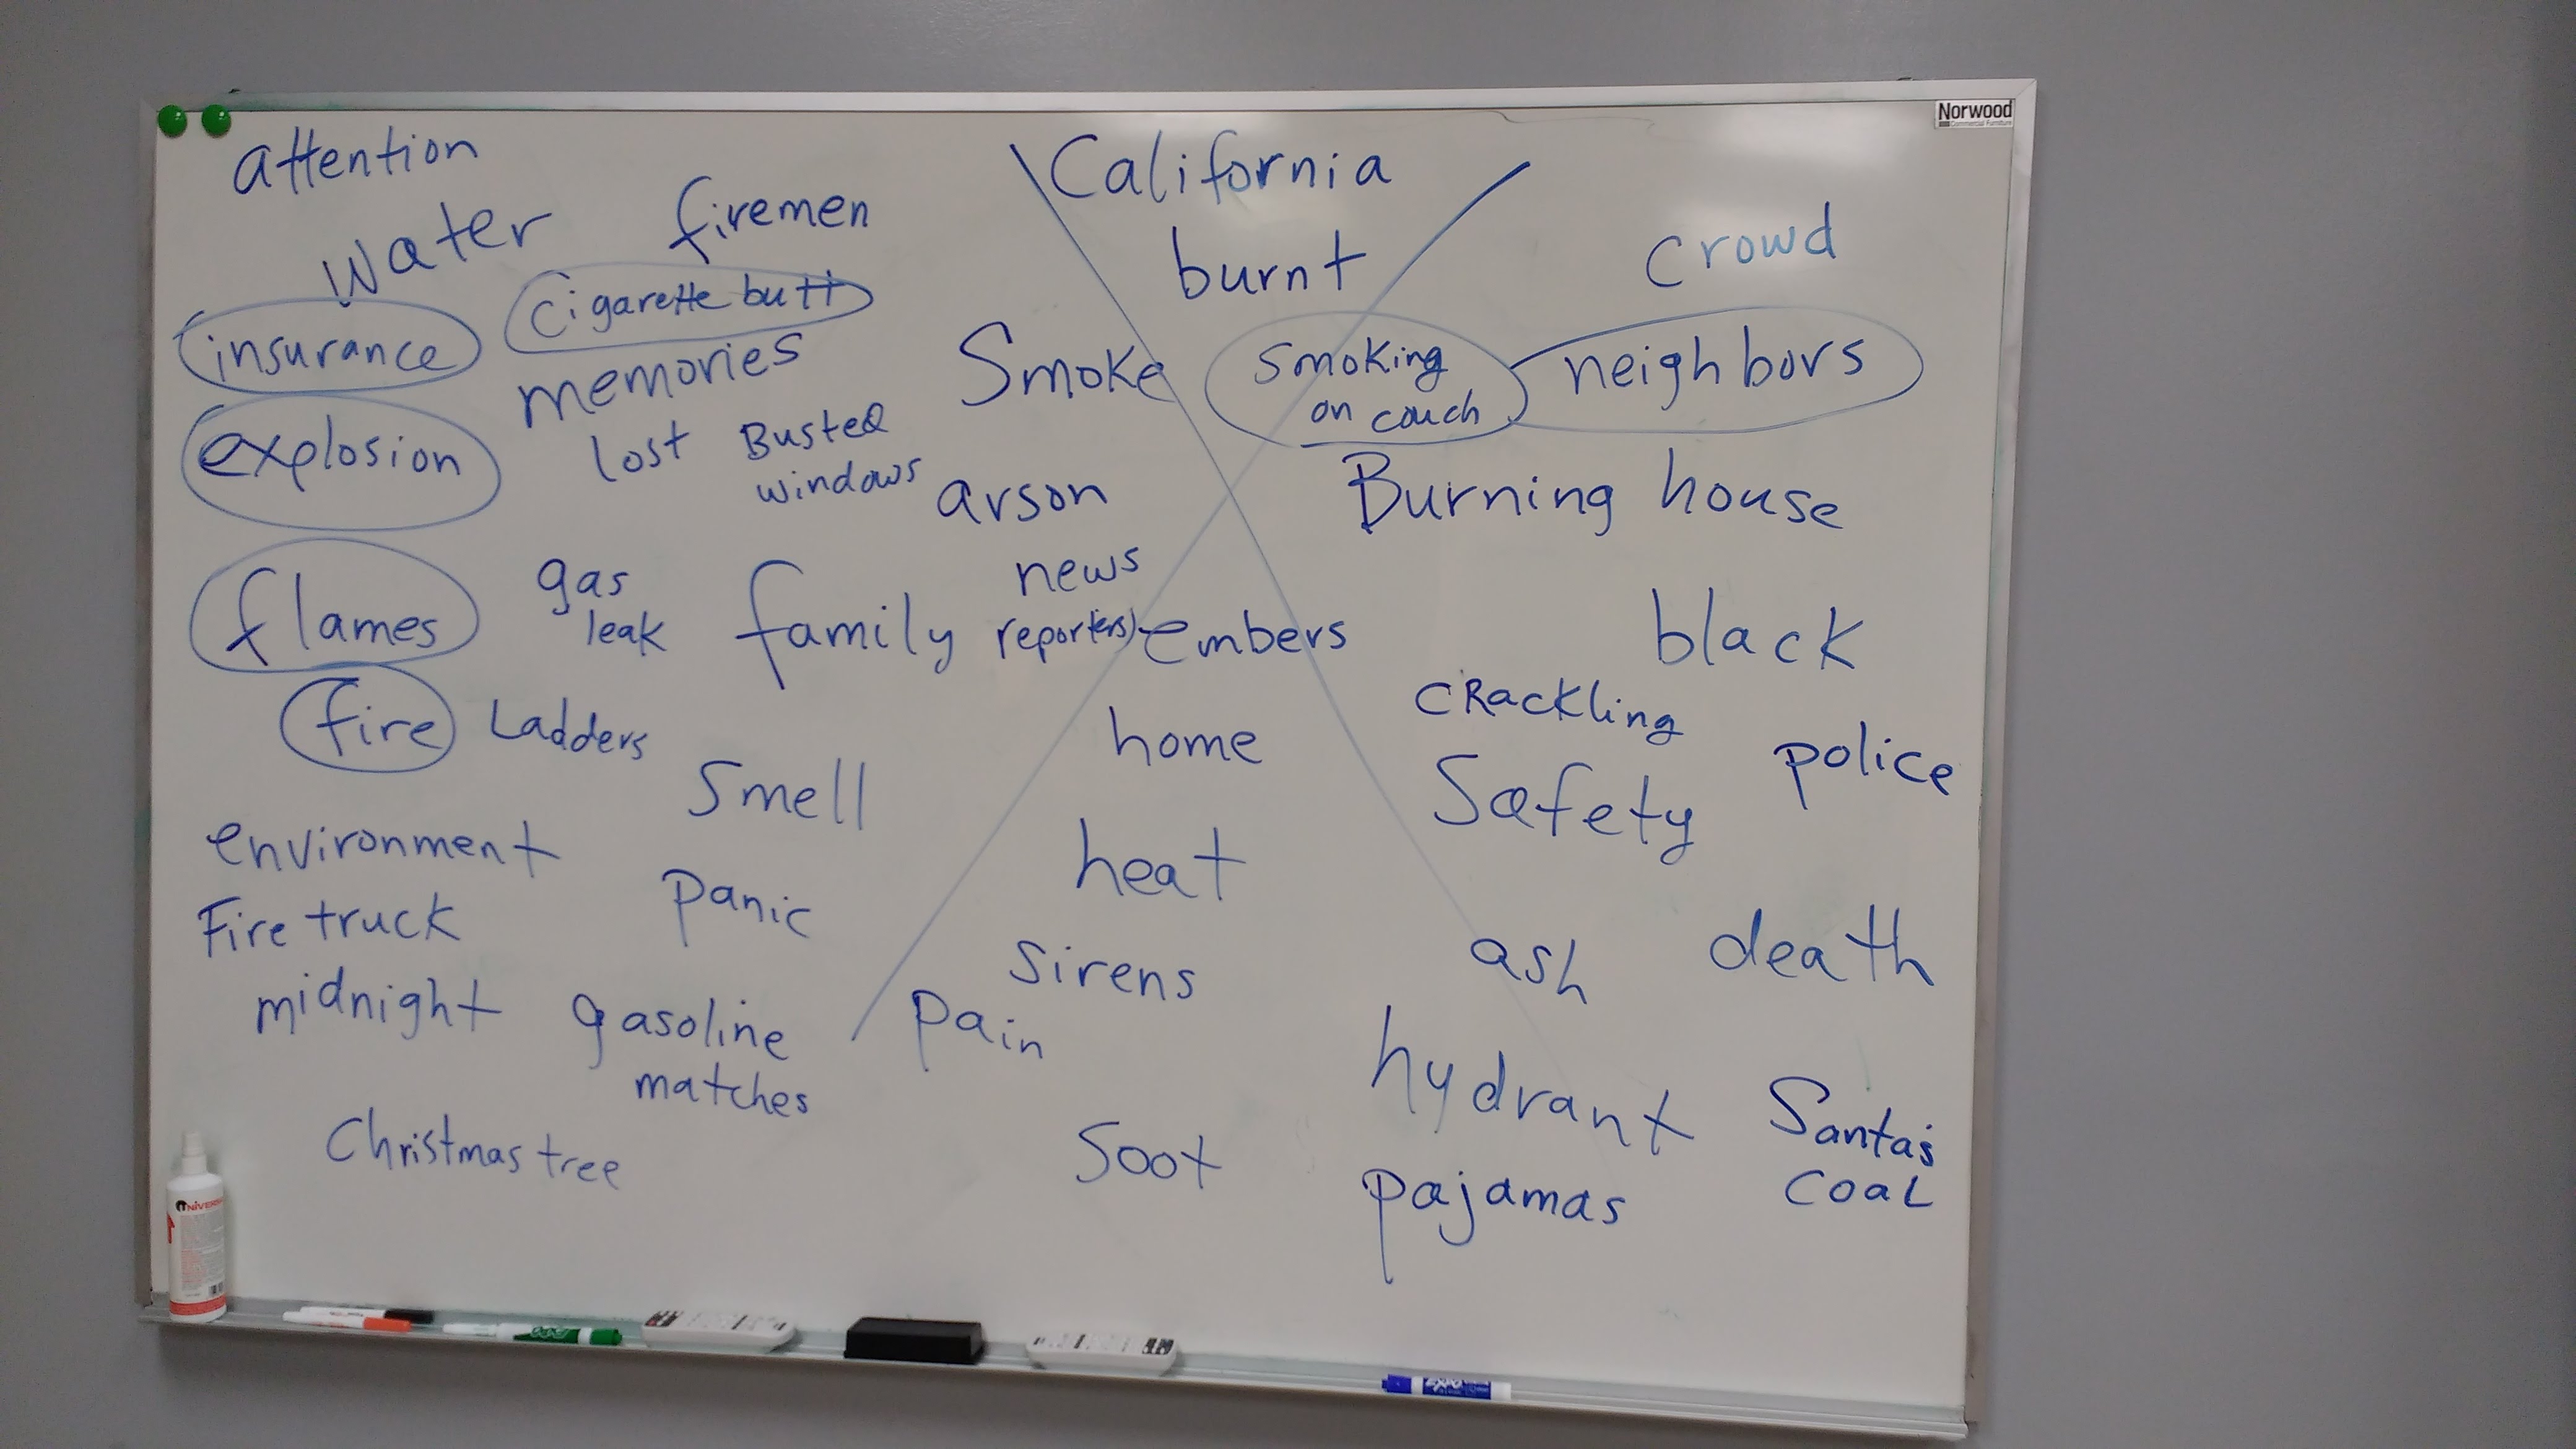 Norwood
Commercial Furniture
attention
water
firemen
cigarette butt
insurance
memories
lost
explosion
Busted
windows
flames
gas
leak
family
fire
Ladders
smell
environment
Fire truck
panic
midnight
gasoline
matches
Christmas tree
California
burnt
Smoke
arson
news
reporter(s)
embers
home
heat
sirens
pain
soot
crowd
smoking
on couch
neighbors
Burning house
black
cRackling
police
Safety
ash
death
hydrant
Santa's
coal
pajamas